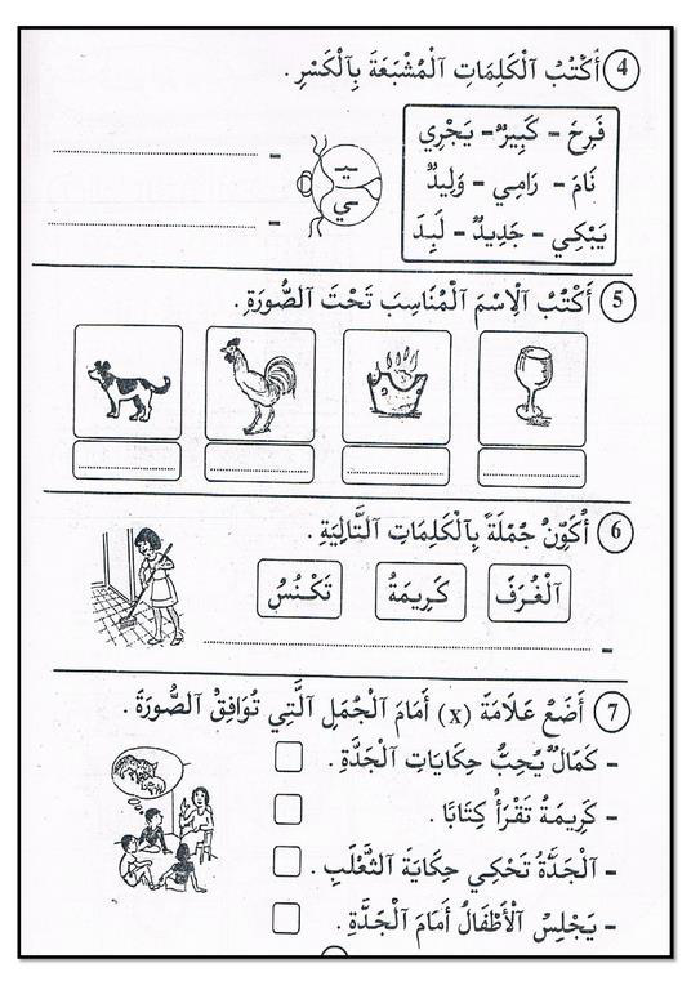 4 أَكْتُبُ ٱلْكَلِمَاتِ ٱلْمُشْبَعَةَ بِٱلْكَسْرِ .
فَرِحَ - كَبِيرٌ - يَجْرِي
نَامَ - رَامِي - وَلِيدٌ
يَبْكِي - جَدِيدٌ - لَبِدَ
ـيـ
ـي
- ........................
- ........................
5 أَكْتُبُ ٱلْاِسْمَ ٱلْمُنَاسِبَ تَحْتَ ٱلصُّورَةِ .
6 أُكَوِّنُ جُمْلَةً بِٱلْكَلِمَاتِ ٱلتَّالِيَةِ .
ٱلْغُرَفَ كَرِيمَةُ تَكْنُسُ
- ........................
7 أَضَعُ عَلَامَةَ (x) أَمَامَ ٱلْجُمَلِ ٱلَّتِي تُوَافِقُ ٱلصُّورَةَ .
- كَمَالٌ يُحِبُّ حِكَايَاتِ ٱلْجَدَّةِ .
- كَرِيمَةُ تَقْرَأُ كِتَابًا .
- ٱلْجَدَّةُ تَحْكِي حِكَايَةَ ٱلثَّعْلَبِ .
- يَجْلِسُ ٱلْأَطْفَالُ أَمَامَ ٱلْجَدَّةِ .